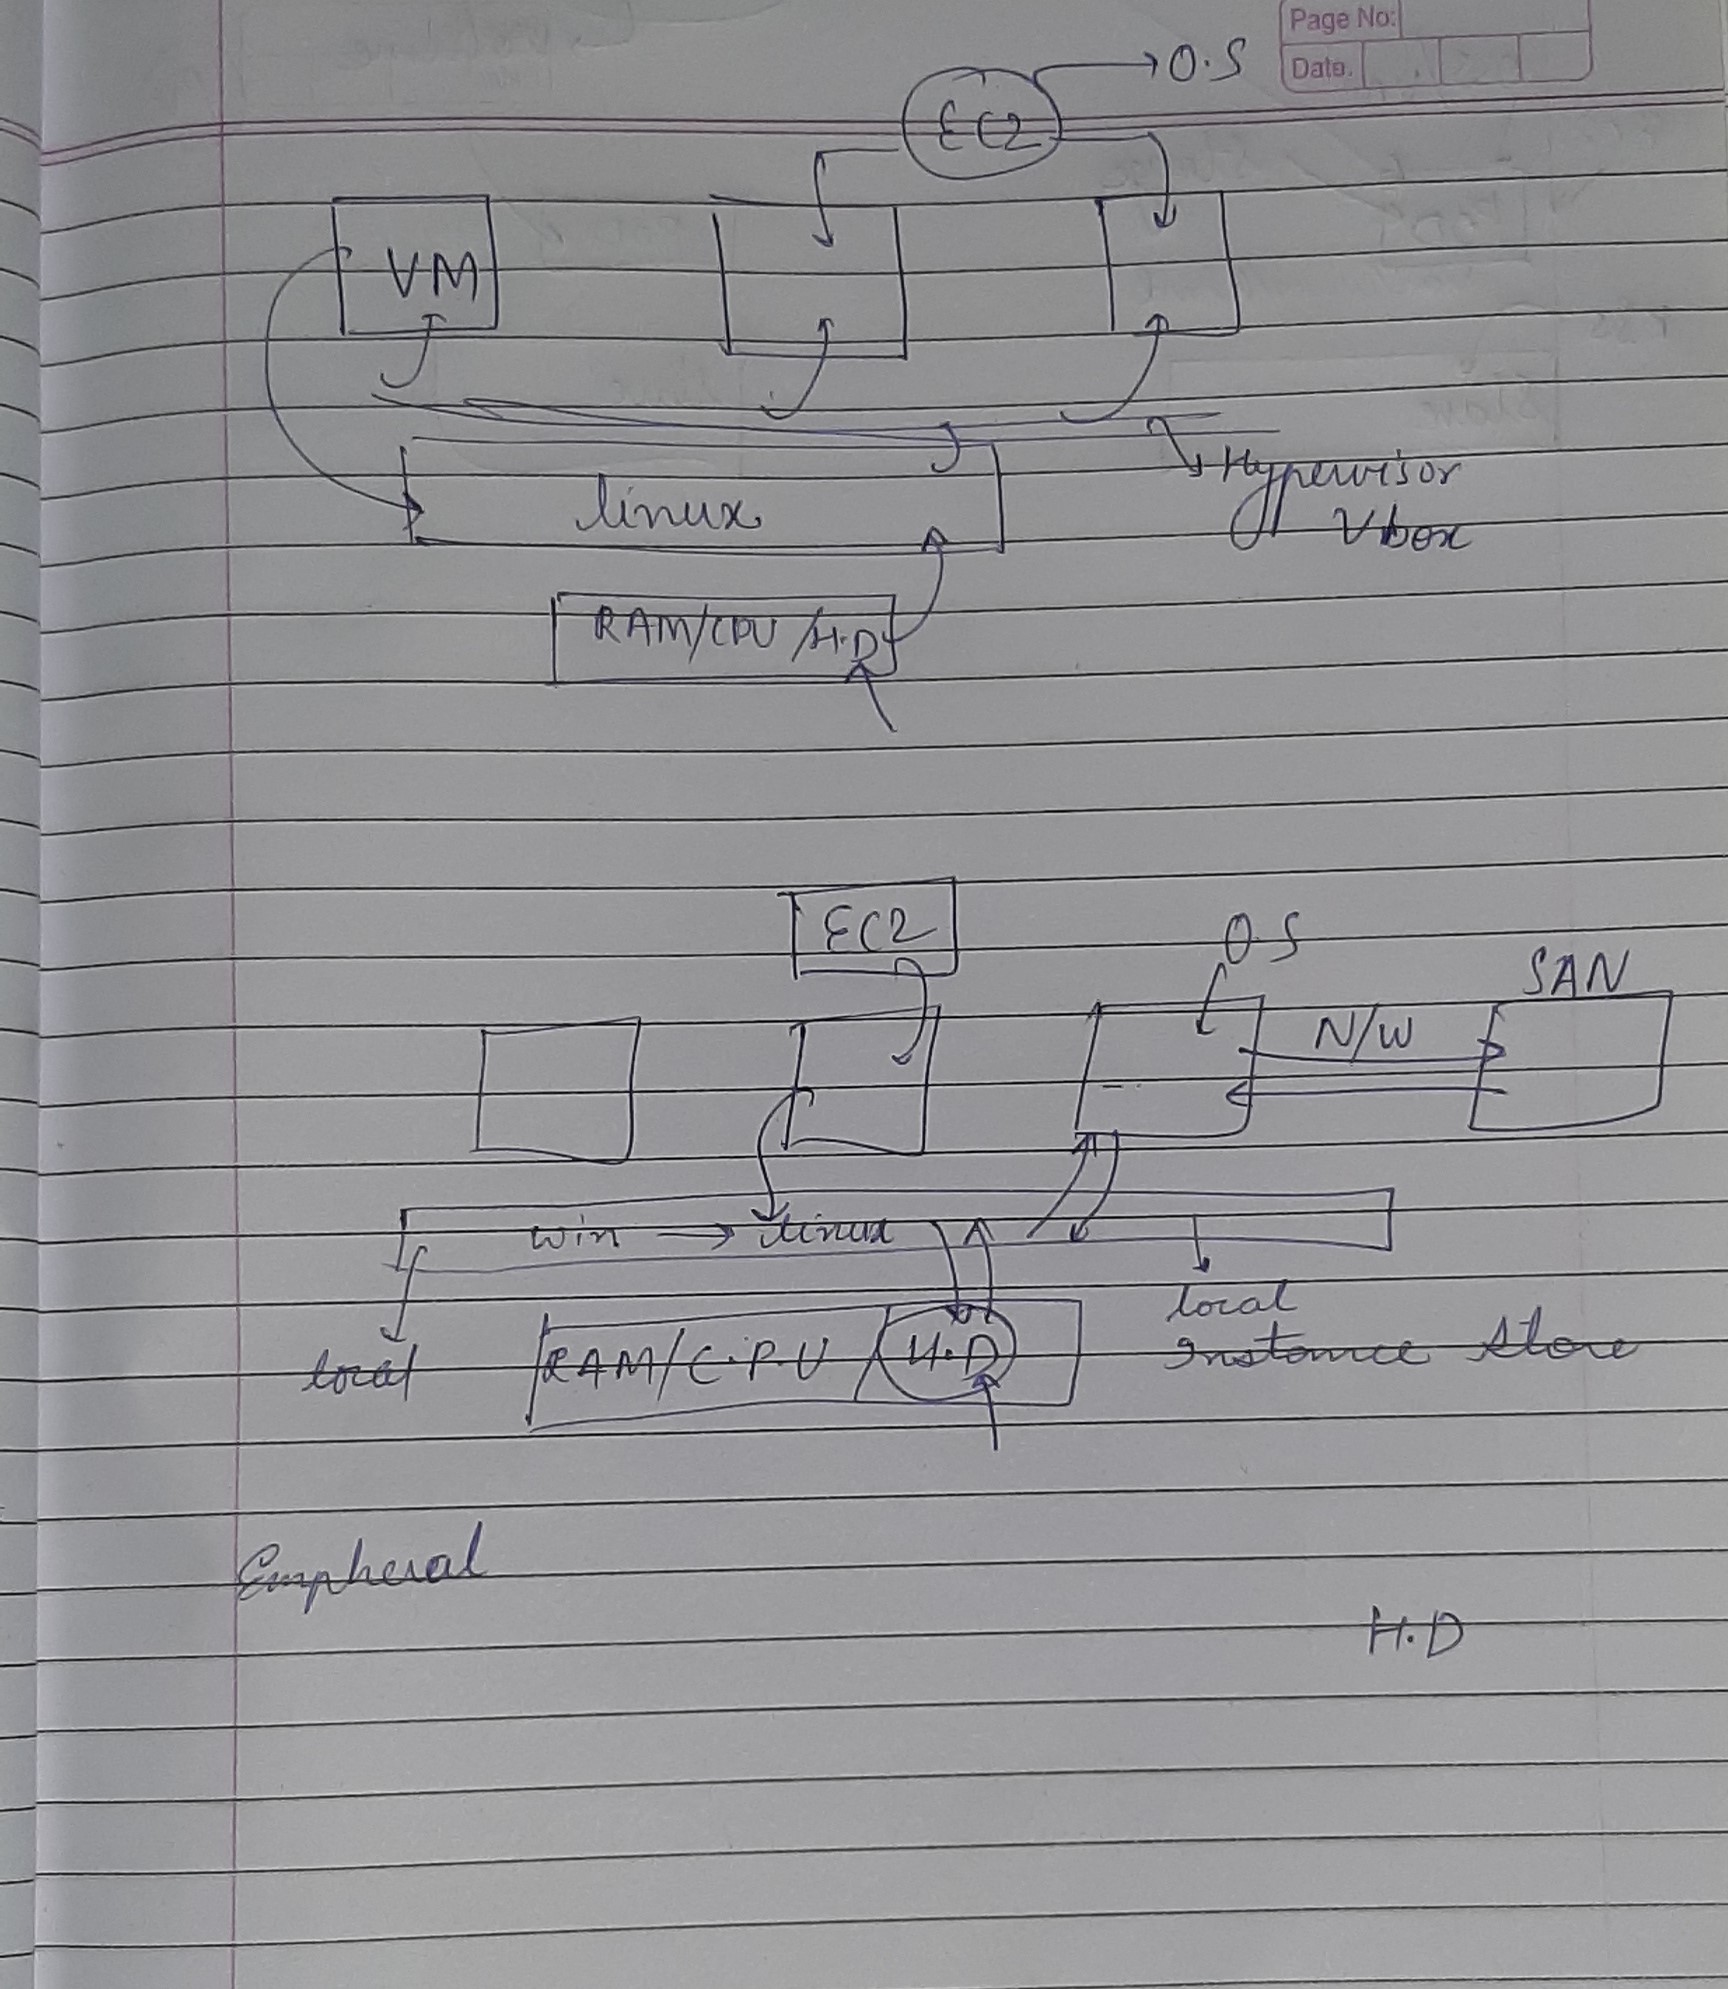 Page No:
Date.
EC2
O.S
VM
linux
Hypervisor
Vbox
RAM/CPU/H.D
EC2
O.S
SAN
N/W
win → linux
local
RAM/C.P.U/H.D
local
Instance Store
Empheral
H.D